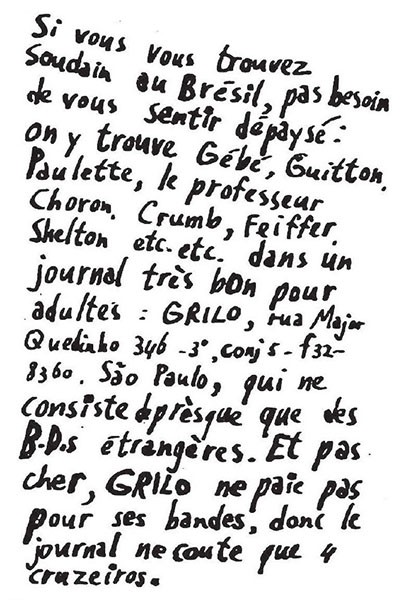 Si vous vous trouvez
Soudain au Brésil, pas besoin
de vous sentir dépaysé :
on y trouve Gébé, Guitton,
Paulette, le professeur
Choron, Crumb, Feiffer,
Shelton etc. etc. dans un
journal très bon pour
adultes : GRILO, rua Major
Quedinho 346 - 3°, conj 5 - f 32-
8360. São Paulo, qui ne
consiste presque que des
B.D.s étrangères. Et pas
cher, GRILO ne paie pas
pour ses bandes, donc le
journal ne coute que 4
cruzeiros.